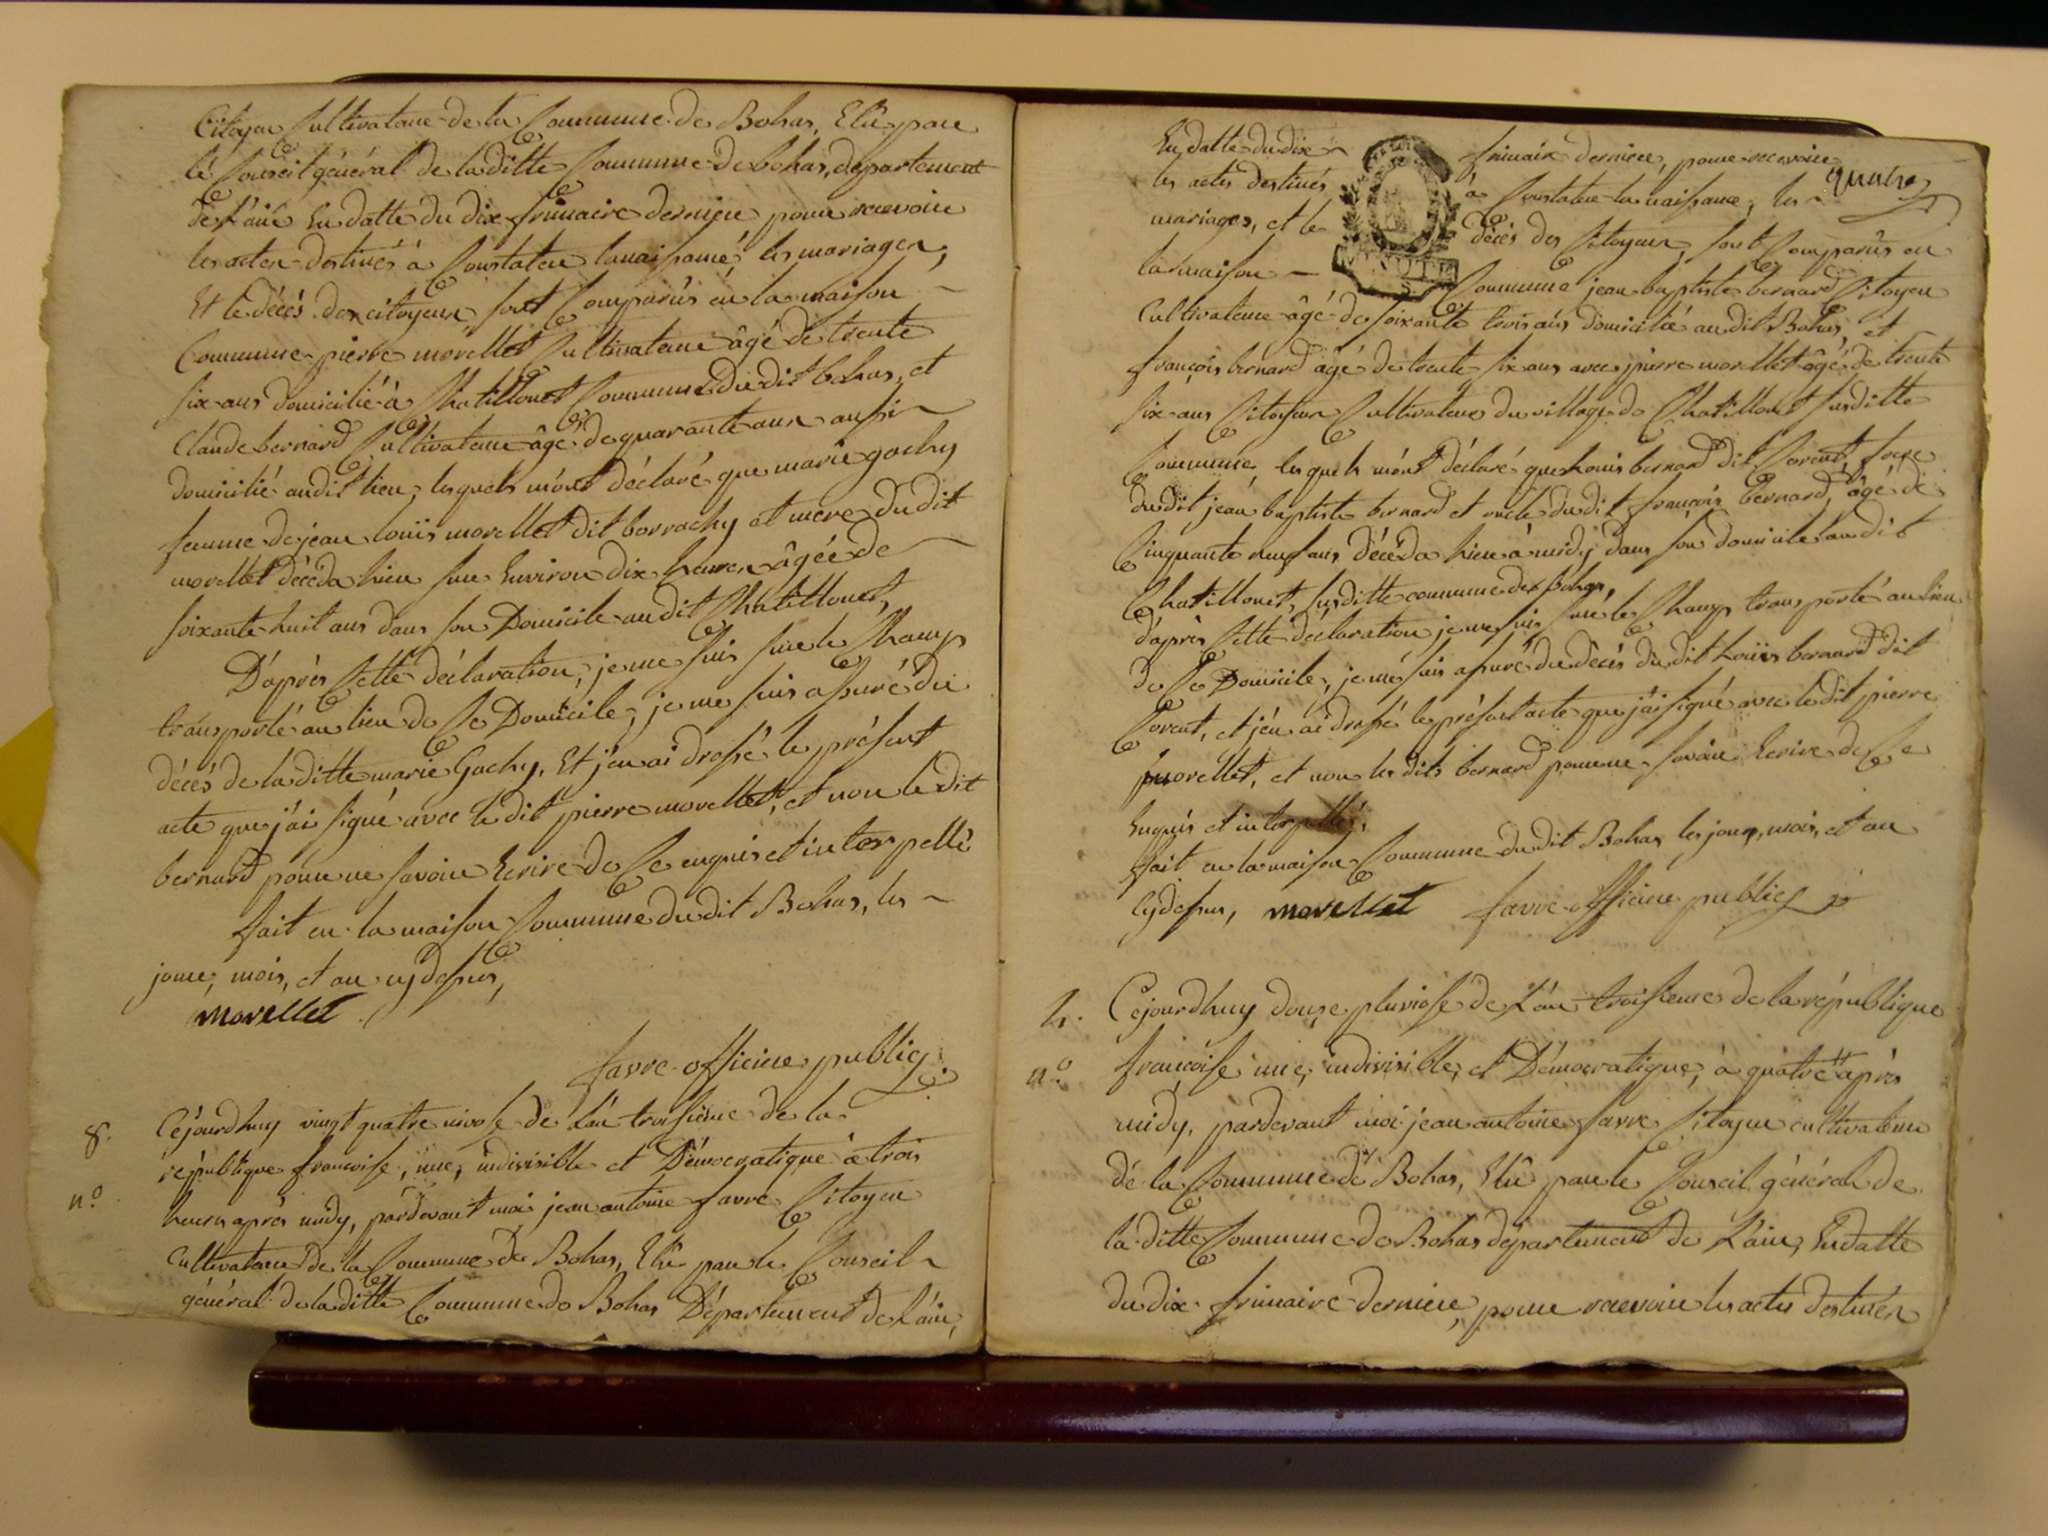 Citoyen Cultivateur de la Commune de Bohas, Elû par
le Conseil général de laditte Commune de bohas, departement
de L'ain En datte du dix frimaire dernier pour recevoir
les actes destinés à Constater la naissance, les mariages,
Et le décés des citoyens, sont Comparûs en la maison
Commune pierre morellet Cultivateur âgé de trente
six ans domicilié à Chatillonet Commune dudit bohas, et
Claude bernard Cultivateur âgé de quarante ans aussi
domicilié audit lieu, lesquels m'ont déclaré que marie gachy
femme de jean louis morellet dit borrachy et mere dudit
morellet décéda hier sur Environ dix heures âgée de
soixante huit ans dans son Domicile audit Chatillonet,
D'après Cette déclaration, je me suis sur le Champ
transporté au lieu de Ce Domicile, je me suis assuré du
décés de laditte marie Gachy, Et j'en ai dressé le présent
acte que j'ai signé avec ledit pierre morellet, et non ledit
bernard pour ne savoir Ecrire de Ce enquis et interpellé
fait en la maison Commune dudit Bohas, les
jour, mois, et an cydessus,
morellet
favre officier public
8. Cejourdhuy vingt quatre nivose de L'an troisième de la
république francoise, une, indivisible et Démocratique à trois
n.o heures après midy, pardevant moi jean antoine favre Citoyen
Cultivateur de la Commune de Bohas, Elû par le Conseil
général de laditte Commune de Bohas Département de L'ain,
En datte du dix frimaire dernier, pour recevoir
quatre
les actes destinés à Constater la naissance, les
mariages, et le décés des Citoyens, sont Comparûs en
la maison Commune jean baptiste bernard Citoyen
Cultivateur âgé de soixante trois ans domicilié audit Bohas, et
françois bernard âgé de trente six ans avec pierre morellet âgé de trente
six ans Citoyens Cultivateurs du village de Chatillonet susditte
Commune, lesquels m'ont déclaré que Louis bernard dit Corent, frere
dudit jean baptiste bernard et oncle dudit françois bernard, âgé de
Cinquante neuf ans décéda hier à midy dans son domicile audit
Chatillonet, susditte commune de Bohas,
d'après Cette déclaration je me suis sur le Champ transporté au lieu
de Ce Domicile, je me suis assuré du décés dudit Louis bernard dit
Corent, et j'en ai dressé le présent acte que j'ai signé avec ledit pierre
morellet, et non lesdits bernard pour ne savoir Ecrire de Ce
Enquis et interpellés,
fait en la maison Commune dudit Bohas les jour, mois, et an
cydessus, morellet favre officier public
Cejourdhuy douze pluviose de L'an troisieme de la république
n.o françoise une, indivisible, et Démocratique, à quatre après
midy, pardevant moi jean antoine favre Citoyen cultivateur
de la Commune de Bohas, Elû par le Conseil général de
la ditte Commune de Bohas departement de L'ain, En datte
du dix frimaire dernier, pour recevoir les actes destinés